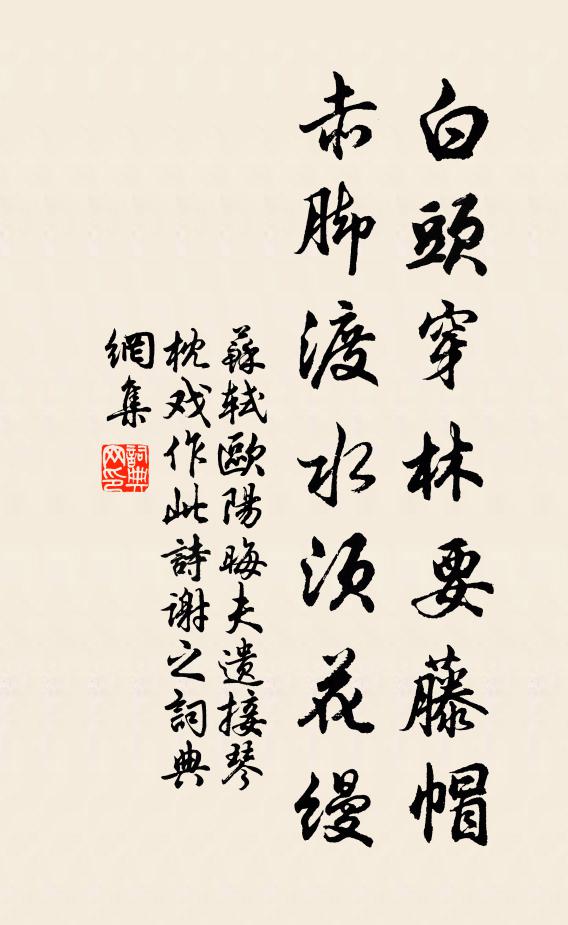 白頭穿林要藤帽
赤脚渡水须花缦
蘇轼歐陽晦夫遺接琴
枕戏作此詩谢之詞典
網集
詞典
网印